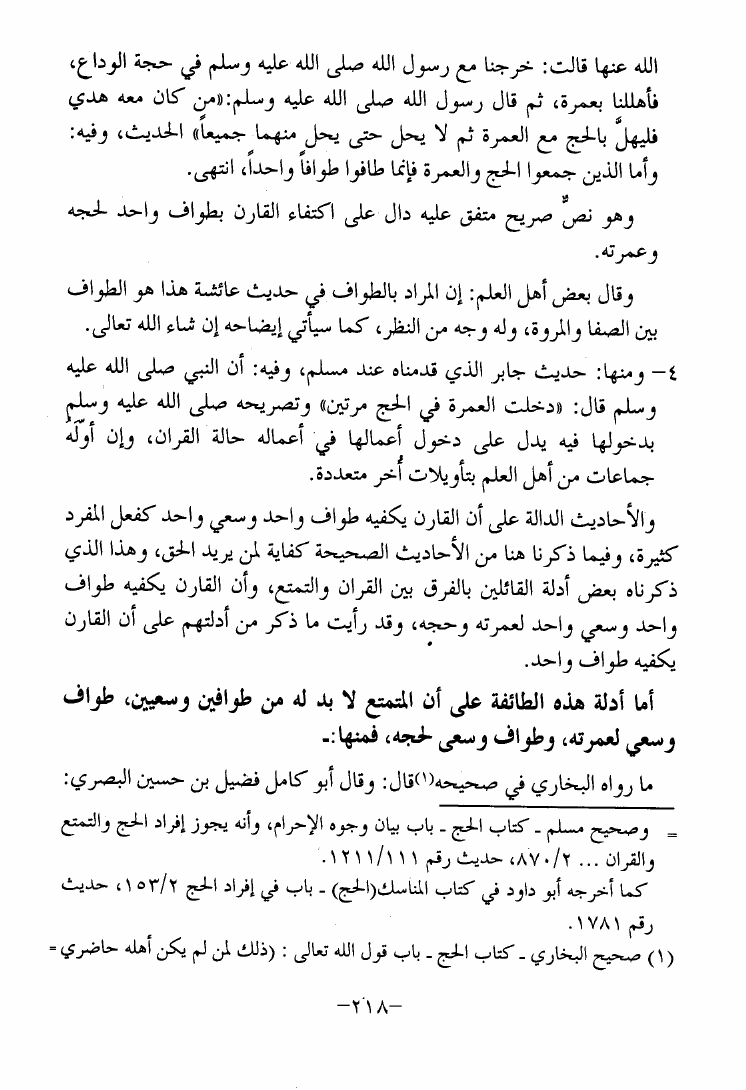 الله عنها قالت: خرجنا مع رسول الله صلى الله عليه وسلم في حجة الوداع،
فأهللنا بعمرة، ثم قال رسول الله صلى الله عليه وسلم:«من كان معه هدي
فليهلَّ بالحج مع العمرة ثم لا يحل حتى يحل منهما جميعاً» الحديث، وفيه:
وأما الذين جمعوا الحج والعمرة فإنما طافوا طوافاً واحداً، انتهى.
وهو نصٌ صريح متفق عليه دال على اكتفاء القارن بطواف واحد لحجه
وعمرته.
وقال بعض أهل العلم: إن المراد بالطواف في حديث عائشة هذا هو الطواف
بين الصفا والمروة، وله وجه من النظر، كما سيأتي إيضاحه إن شاء الله تعالى.
٤- ومنها: حديث جابر الذي قدمناه عند مسلم، وفيه: أن النبي صلى الله عليه
وسلم قال: «دخلت العمرة في الحج مرتين» وتصريحه صلى الله عليه وسلم
بدخولها فيه يدل على دخول أعمالها في أعماله حالة القران، وإن أوّلَهُ
جماعات من أهل العلم بتأويلات أُخر متعددة.
والأحاديث الدالة على أن القارن يكفيه طواف واحد وسعي واحد كفعل المفرد
كثيرة، وفيما ذكرنا هنا من الأحاديث الصحيحة كفاية لمن يريد الحق، وهذا الذي
ذكرناه بعض أدلة القائلين بالفرق بين القران والتمتع، وأن القارن يكفيه طواف
واحد وسعي واحد لعمرته وحجه، وقد رأيت ما ذكر من أدلتهم على أن القارن
يكفيه طواف واحد.
أما أدلة هذه الطائفة على أن المتمتع لا بد له من طوافين وسعيين، طواف
وسعي لعمرته، وطواف وسعى لحجه، فمنها:ـ
ما رواه البخاري في صحيحه(١)قال: وقال أبو كامل فضيل بن حسين البصري:
= وصحيح مسلم ـ كتاب الحج ـ باب بيان وجوه الإحرام، وأنه يجوز إفراد الحج والتمتع
والقران ... ٨٧٠/٢، حديث رقم ١٢١١/١١١.
كما أخرجه أبو داود في كتاب المناسك(الحج) ـ باب في إفراد الحج ١٥٣/٢، حديث
رقم ١٧٨١.
(١) صحيح البخاري ـ كتاب الحج ـ باب قول الله تعالى : (ذلك لمن لم يكن أهله حاضري =
-٢١٨-